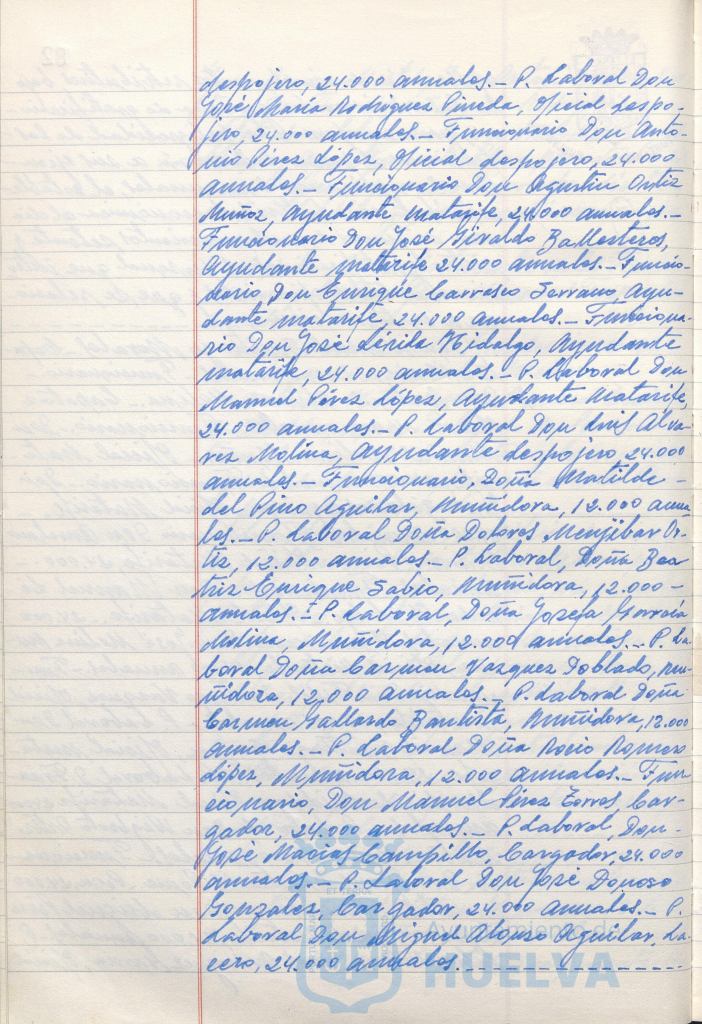 despojero, 24.000 anuales.- P. Laboral Don
José María Rodriguez Pineda, Oficial despo-
jero, 24.000 anuales.- Funcionario Don Anto-
nio Pérez López, Oficial despojero, 24.000
anuales.- Funcionario Don Agustin Ortiz
Muñoz, Ayudante matarife, 24.000 anuales.-
Funcionario Don José Giraldo Ballesteros,
Ayudante matarife 24.000 anuales.- Funcio-
nario Don Enrique Carrasco Serrano, Ayu-
dante matarife, 24.000 anuales.- Funciona-
rio Don José Lérida Hidalgo, Ayudante
matarife, 24.000 anuales.- P. Laboral Don
Manuel Pérez López, Ayudante Matarife,
24.000 anuales.- P. Laboral Don Luis Alva-
rez Molina, Ayudante despojero, 24.000
anuales.- Funcionario, Doña Matilde-
del Pino Aguilar, Muñidora, 12.000 anua-
les.- P. Laboral Doña Dolores Menjibar Or-
tiz, 12.000 anuales.- P. Laboral, Doña Bea-
triz Enrique Sabio, Muñidora, 12.000-
anuales.- P. Laboral, Doña Josefa Garcia
Molina, Muñidora, 12.000 anuales.- P. La-
boral Doña Carmen Vazquez Doblado, mu-
ñidora, 12.000 anuales.- P. Laboral Doña
Carmen Gallardo Bautista, Muñidora, 12.000
anuales.- P. Laboral Doña Rocio Romero
López, Muñidora, 12.000 anuales.- Fun-
cionario, Don Manuel Pérez Torres, Car-
gador, 24.000 anuales.- P. Laboral, Don-
José Macías Campillo, Cargador, 24.000
anuales.- P. Laboral Don José Donoso
Gonzalez, Cargador, 24.000 anuales.- P.
Laboral Don Miguel Alonso Aguilar, La-
cero, 24.000 anuales.- - - - - - - - - -
Ayuntamiento de
HUELVA